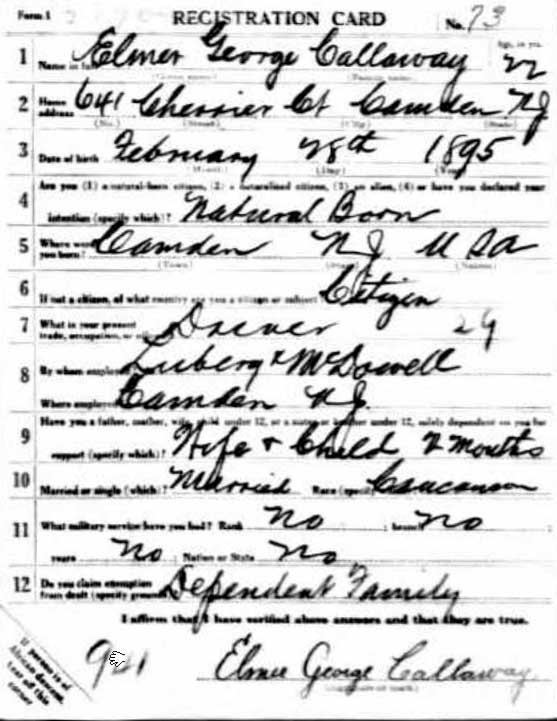 Form 1 REGISTRATION CARD No. 73
1 Name in full Elmer George Callaway Age, in yrs. 22
(Given name) (Family name)
2 Home address 641 Cherrier Ct Camden NJ
(No.) (Street) (City) (State)
3 Date of birth February 28th 1895
(Month) (Day) (Year)
4 Are you (1) a natural-born citizen, (2) a naturalized citizen, (3) an alien, (4) or have you declared your
intention (specify which)? Natural Born
5 Where were you born? Camden NJ USA
(Town) (State) (Nation)
6 If not a citizen, of what country are you a citizen or subject? Citizen
7 What is your present trade, occupation, or office? Driver 29
8 By whom employed? & McDowell
Where employed? Camden NJ.
9 Have you a father, mother, wife, child under 12, or a sister or brother under 12, solely dependent on you for
support (specify which)? Wife + Child 2 months
10 Married or single (which)? Married Race (specify which)? Caucasian
11 What military service have you had? Rank No ; branch No ;
years No ; Nation or State No
12 Do you claim exemption from draft (specify grounds)? Dependent Family
I affirm that I have verified above answers and that they are true.
If person is of African descent, tear off this corner
941 Elmer George Callaway